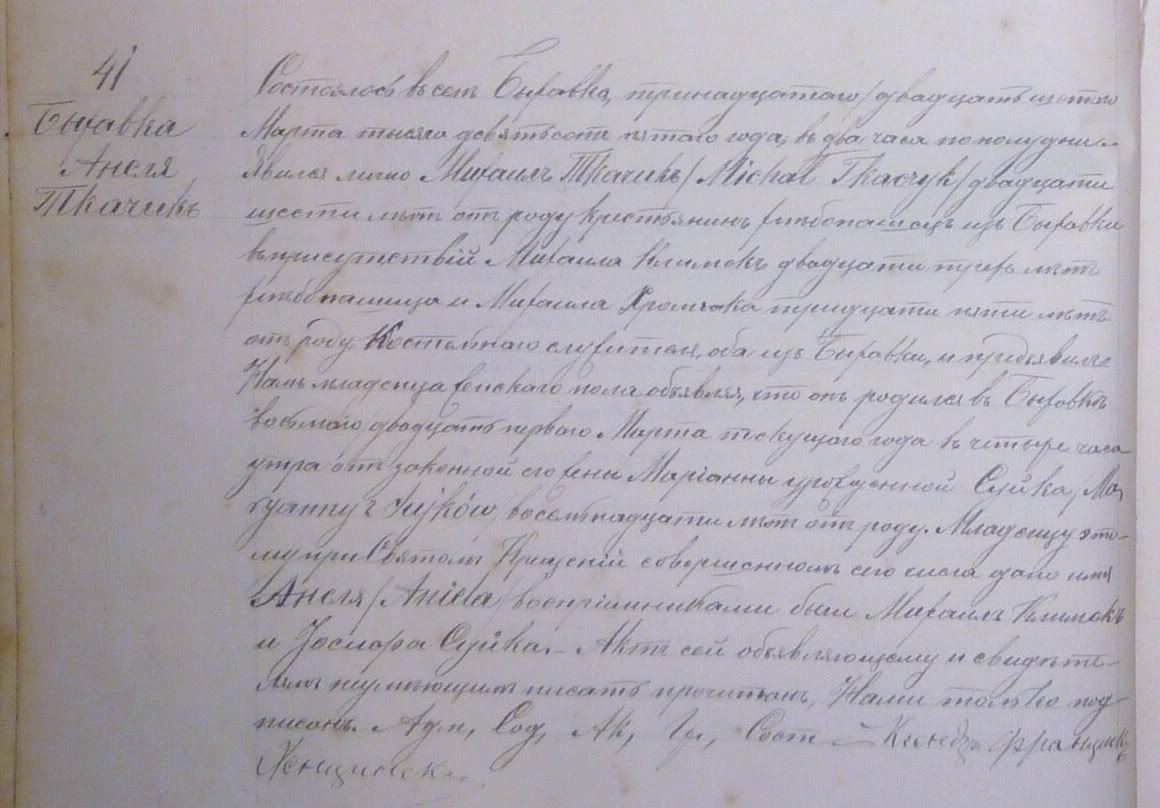 41
Быхавка
Анеля
Ткачикъ
Состоялось въ селѣ Быхавка, тринадцатаго/двадцать шестаго
Марта тысяча девятьсотъ пятаго года, въ два часа по полудни.
Явился лично Михаилъ Ткачикъ /Michał Tkaczyk/ двадцати
шести лѣтъ отъ роду крестьянинъ хлѣбопашецъ изъ Быхавки
въ присутствій Михаила Климекъ двадцати трехъ лѣтъ
хлѣбопашца и Михаила Хромчака тридцати пяти лѣтъ
отъ роду Костельнаго служителя, оба изъ Быхавки, и предъявилъ
Намъ младенца женскаго пола объявляя, что онъ родился въ Быхавкѣ
восьмаго/двадцать перваго Марта текущаго года въ четыре часа
утра отъ законной его жены Маріанны урожденной Суйка /Ma-
ryanny z Sujków/ восемьнадцати лѣтъ отъ роду. Младенцу это-
му при Святомъ Крещеній совершенномъ сего числа дано имя
Анеля /Aniela/ воспріемниками были Михаилъ Климекъ
и Суйка. Актъ сей объявляющему и свидѣте-
лямъ неумѣющимъ писать прочитанъ, Нами только под-
писанъ. Адм, Сод, Ак, Гр, Сост – Ксендзъ Францискъ